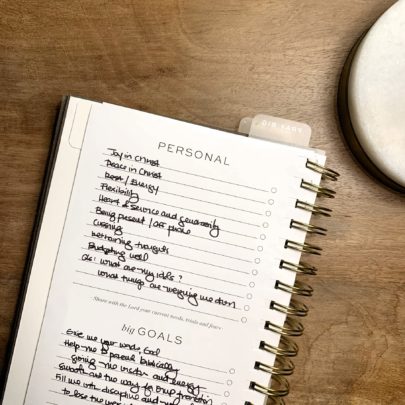 PERSONAL
Joy in Christ
Peace in Christ
Rest / Energy
Flexibility
Heart of service and generosity
Being present / off phone
Cussing
bettering thoughts
Budgeting well
Qs: what are my idols?
what things are weighing me down
Share with the Lord your current needs, trials and fears
big GOALS
Give me your words God
Help me to parent biblically
giving me wisdom and energy
the way to
Fill me with discipline and
to lose the